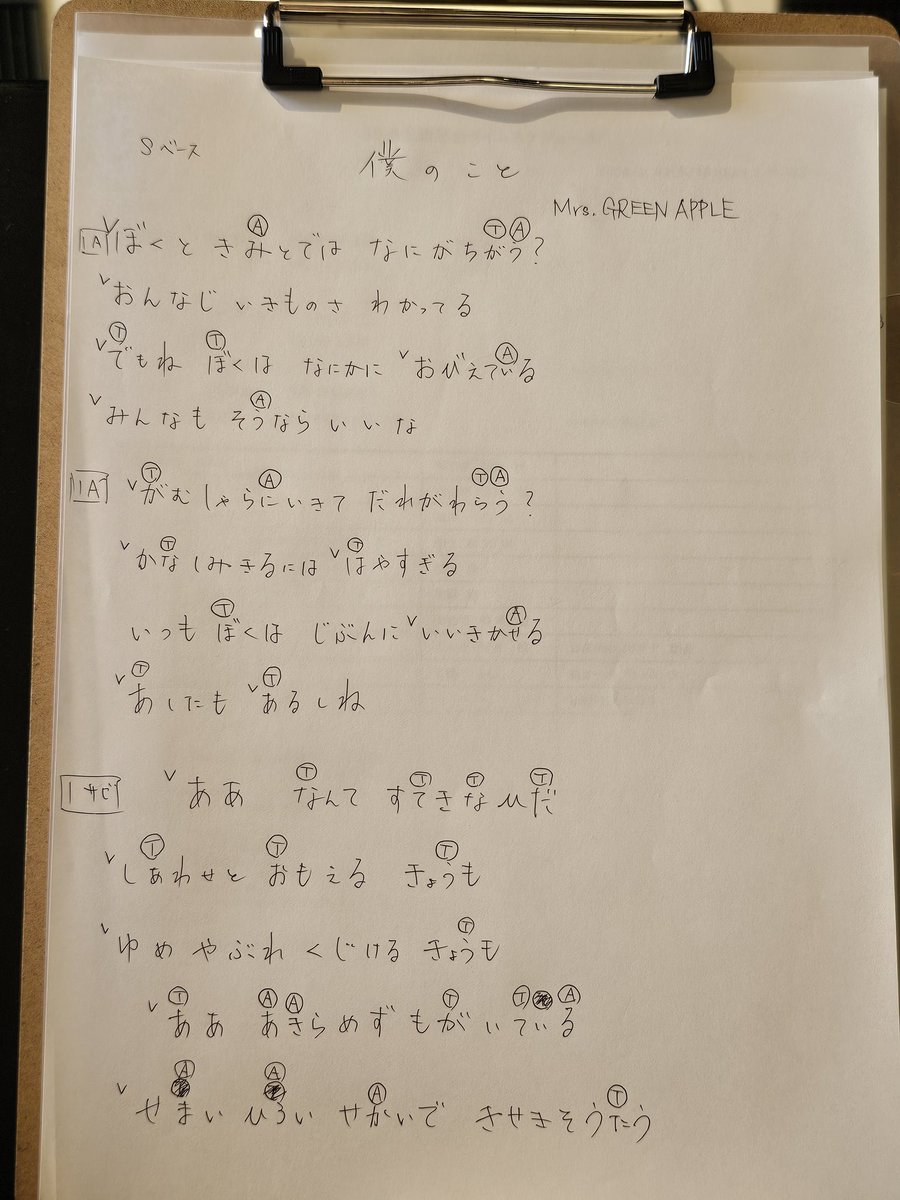 Sベース
僕のこと
Mrs. GREEN APPLE
Ⓐ Ⓣ Ⓐ
1A ∨ぼくと きみとでは なにがちがう?
∨おんなじ いきものさ わかってる
Ⓣ Ⓣ Ⓐ
∨でもね ぼくは なにかに ∨おびえている
Ⓐ
∨みんなも そうなら いいな
Ⓣ Ⓐ Ⓣ Ⓐ
1A ∨がむしゃらにいきて だれがわらう?
Ⓣ Ⓣ
∨かなしみきるには ∨はやすぎる
Ⓣ Ⓐ
いつも ぼくは じぶんに ∨いいきかせる
Ⓣ Ⓣ
∨あしたも ∨あるしね
Ⓣ Ⓣ Ⓣ Ⓣ
1サビ ∨ああ なんて すてきなひだ
Ⓣ Ⓣ Ⓣ
∨しあわせと おもえる きょうも
Ⓣ
∨ゆめ やぶれ くじける きょうも
Ⓣ Ⓐ Ⓐ Ⓣ Ⓣ Ⓐ
∨ああ あきらめず もがいている
Ⓐ Ⓐ Ⓐ Ⓣ
∨せまい ひろい せかいで きせきそうたう